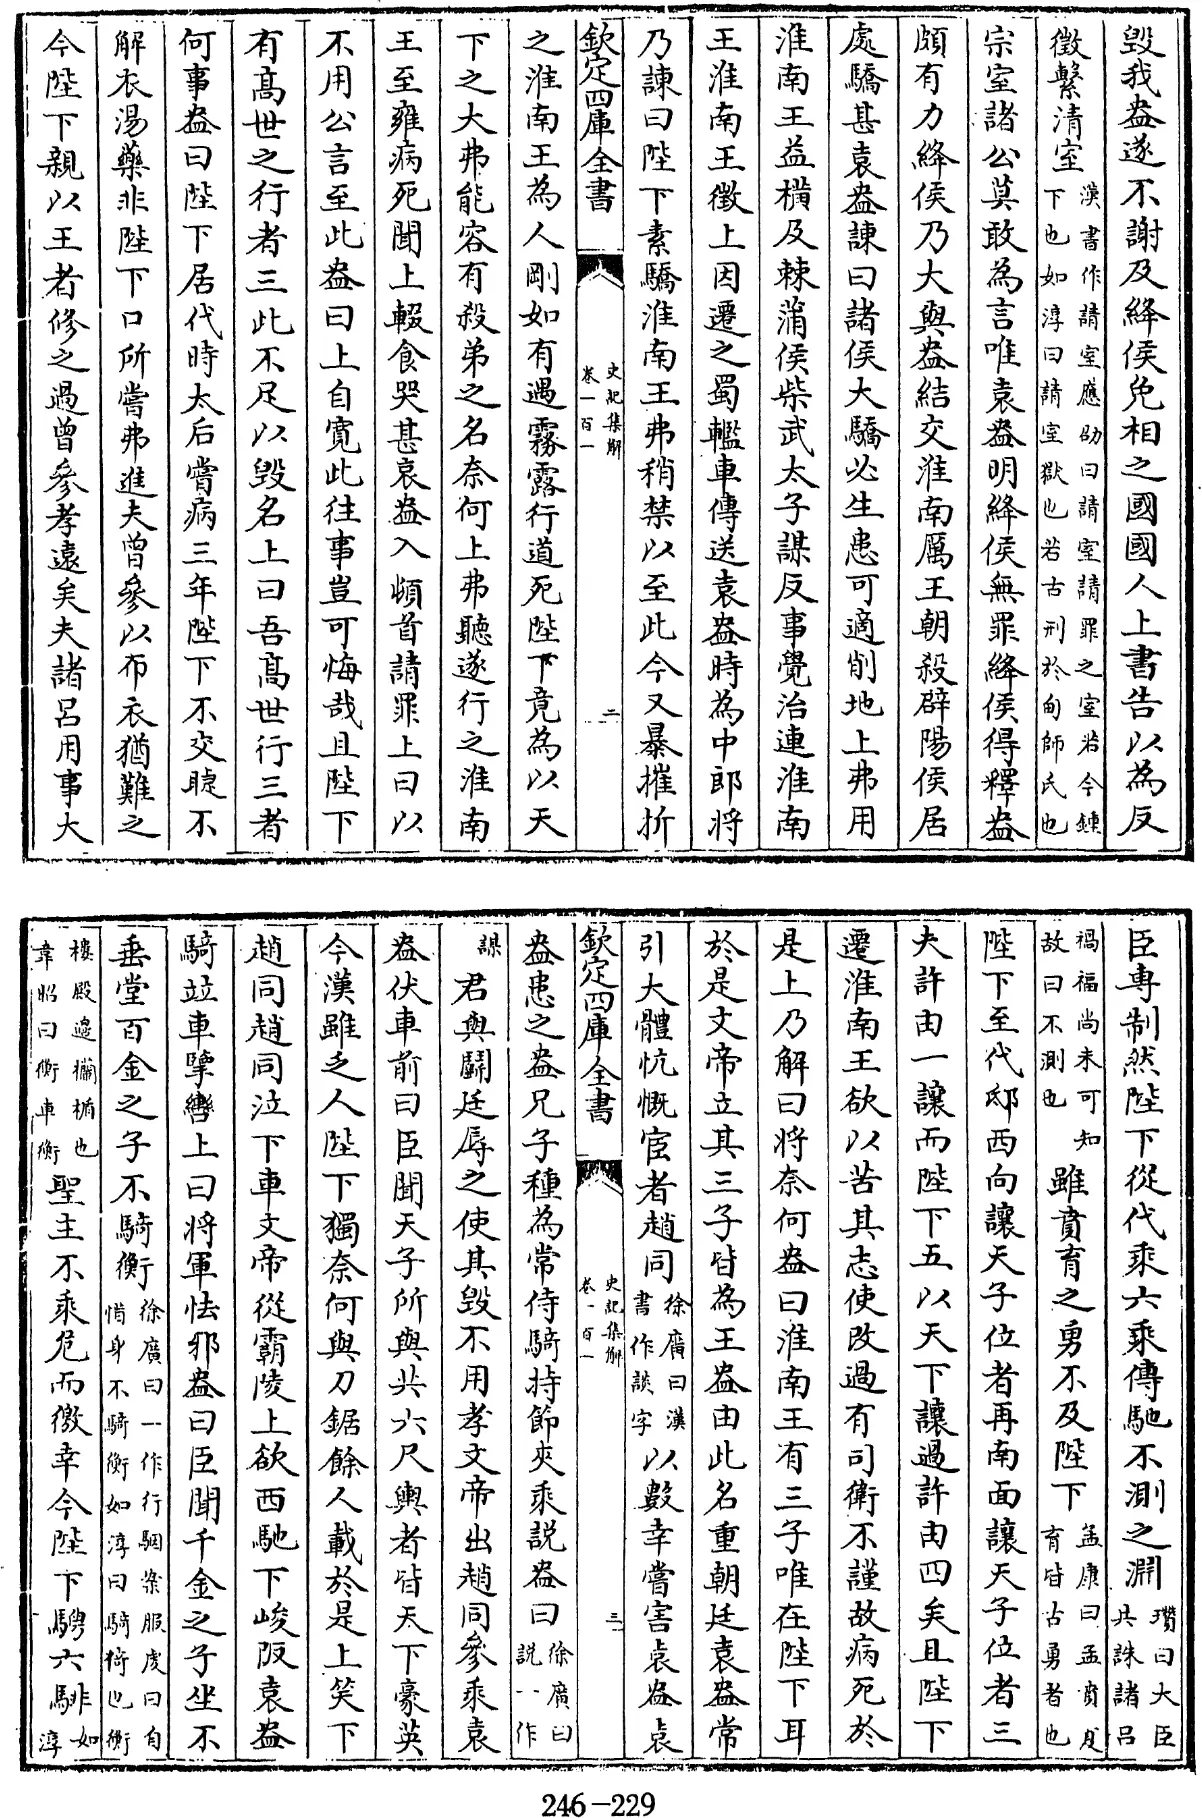 毀我盎遂不謝及絳侯免相之國國人上書告以為反
徵繫清室漢書作請室應劭曰請室請罪之室若今鍾下也如淳曰請室獄也若古刑於甸師氏也
宗室諸公莫敢為言唯袁盎明絳侯無罪絳侯得釋盎
頗有力絳侯乃大與盎結交淮南厲王朝殺辟陽侯居
處驕甚袁盎諫曰諸侯大驕必生患可適削地上弗用
淮南王益橫及棘蒲侯柴武太子謀反事覺治連淮南
王淮南王徵上因遷之蜀轞車傳送袁盎時為中郎將
乃諫曰陛下素驕淮南王弗稍禁以至此今又暴摧折
欽定四庫全書
史記集解
卷一百一
二
之淮南王為人剛如有遇霧露行道死陛下竟為以天
下之大弗能容有殺弟之名奈何上弗聽遂行之淮南
王至雍病死聞上輟食哭甚哀盎入頓首請罪上曰以
不用公言至此盎曰上自寬此往事豈可悔哉且陛下
有髙世之行者三此不足以毀名上曰吾髙世行三者
何事盎曰陛下居代時太后嘗病三年陛下不交睫不
解衣湯藥非陛下口所嘗弗進夫曾參以布衣猶難之
今陛下親以王者修之過曾參孝遠矣夫諸呂用事大
臣専制然陛下從代乘六乘傳馳不測之淵瓚曰大臣共誅諸呂
禍福尚未可知故曰不測也雖賁育之勇不及陛下孟康曰孟賁夏育皆古勇者也
陛下至代邸西向讓天子位者再南面讓天子位者三
夫許由一讓而陛下五以天下讓過許由四矣且陛下
遷淮南王欲以苦其志使改過有司衛不謹故病死於
是上乃解曰將奈何盎曰淮南王有三子唯在陛下耳
於是文帝立其三子皆為王盎由此名重朝廷袁盎常
引大體忼慨宦者趙同徐廣曰漢書作談字以數幸嘗害袁盎袁
欽定四庫全書
史記集解
卷一百一
三
盎患之盎兄子種為常侍騎持節夾乘説盎曰徐廣曰説一作
謀君與鬭廷辱之使其毀不用孝文帝出趙同參乘袁
盎伏車前曰臣聞天子所與共六尺輿者皆天下豪英
今漢雖乏人陛下獨奈何與刀鋸餘人載於是上笑下
趙同趙同泣下車文帝從霸陵上欲西馳下峻阪袁盎
騎竝車擥轡上曰將軍怯邪盎曰臣聞千金之子坐不
垂堂百金之子不騎衡徐廣曰一作行駰案服虔曰自惜身不騎衡如淳曰騎倚也衡
樓殿邉欄楯也韋昭曰衡車衡聖主不乘危而徼幸今陛下騁六騑如淳
246-229